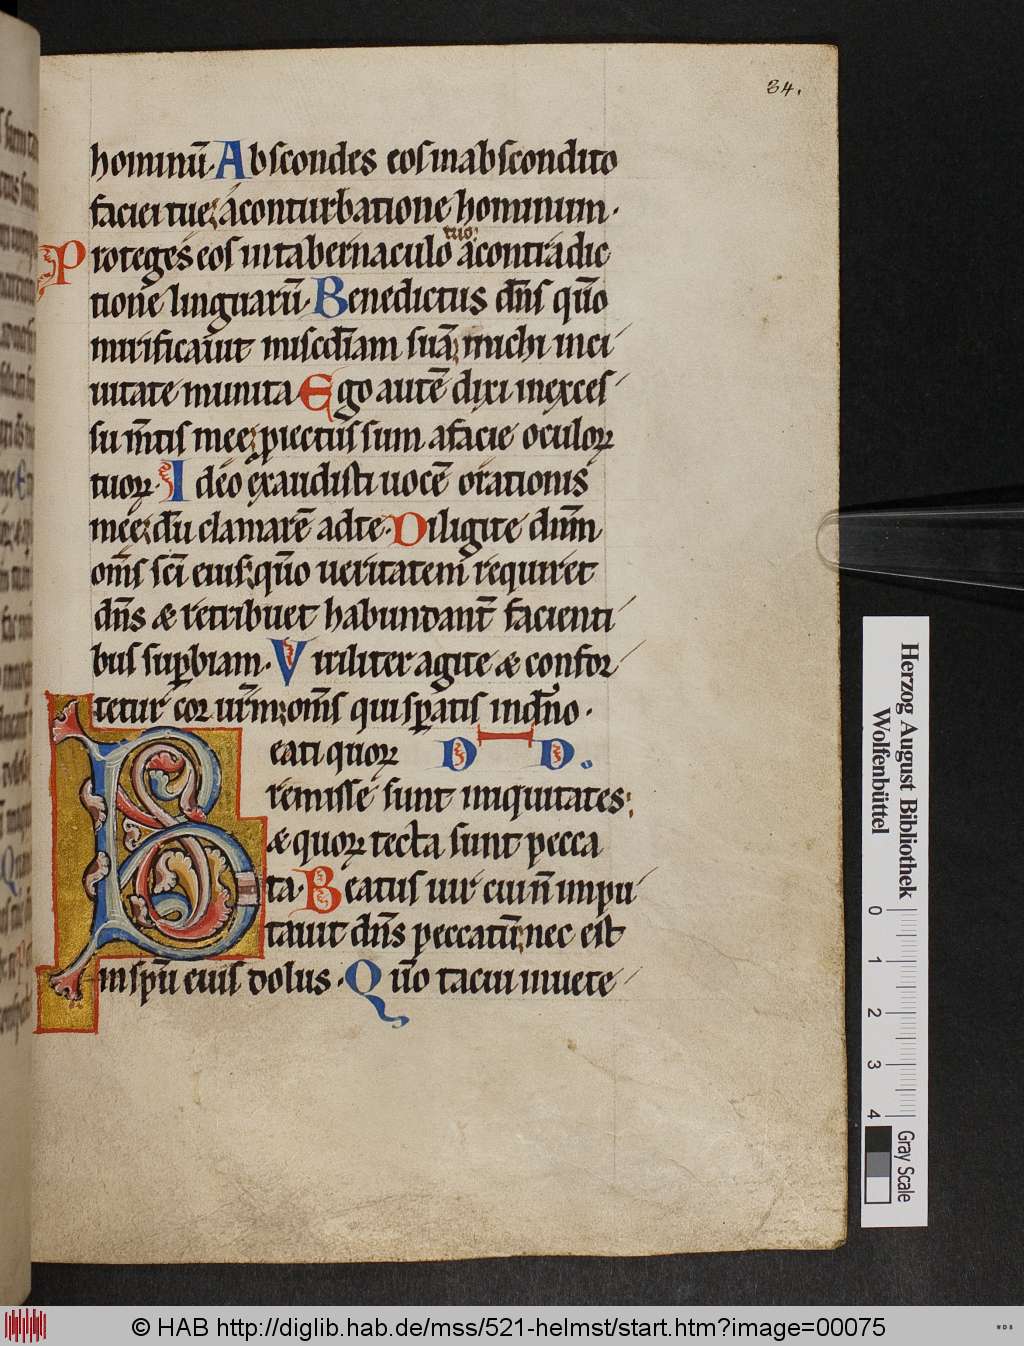 34.
hominū. Abscondes eos in abscondito
faciei tue, a conturbatione hominum.
Proteges eos in tabernaculo tuo: a contradic
tione linguarū. Benedictus dn̄s qm̄o
mirificauit misc̄diam suā michi in ci
uitate munita. Ego autē dixi in exces
su m̄tis mee, piectus sum a facie oculoꝝ
tuoꝝ. Ideo exaudisti uocē orationis
mee, dū clamarē ad te. Diligite dn̄m
om̄s sc̄i eius, qm̄o ueritatem requiret
dn̄s & retribuet habundant̄ facienti
bus sup̄biam. Viriliter agite & confor
tetur cor ur̄m, om̄s qui sp̄atis in dn̄o.
Beati quoꝝ D D.
remisse sunt iniquitates:
& quoꝝ tecta sunt pecca
ta. Beatus uir cui n̄ impu
tauit dn̄s peccatū, nec est
in sp̄u eius dolus. Qm̄o tacui inuete
Herzog August Bibliothek
Wolfenbüttel
0 1 2 3 4
Gray Scale
© HAB http://diglib.hab.de/mss/521-helmst/start.htm?image=00075